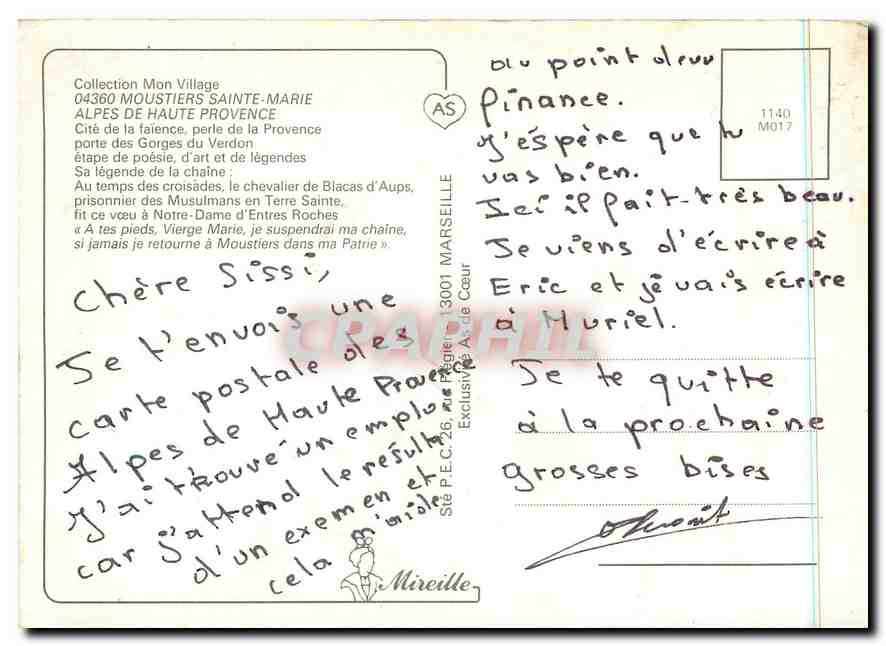 Collection Mon Village
04360 MOUSTIERS SAINTE-MARIE
ALPES DE HAUTE PROVENCE
Cité de la faïence, perle de la Provence
porte des Gorges du Verdon
étape de poésie, d'art et de légendes
Sa légende de la chaîne :
Au temps des croisades, le chevalier de Blacas d'Aups,
prisonnier des Musulmans en Terre Sainte,
fit ce vœu à Notre-Dame d'Entres Roches
« A tes pieds, Vierge Marie, je suspendrai ma chaîne,
si jamais je retourne à Moustiers dans ma Patrie ».
Chère Sissi,
Je t'envois une
carte postale des
Alpes de Haute Provence
J'ai trouvé un emploi
car j'attend le résulta
d'un exemen et
cela m'aide
Mireille
AS
Sté P.E.C. 26, rue 13001 MARSEILLE
Exclusivité As de Cœur
CPAPHIL
1140
M017
au point de vu
finance.
J'éspère que tu
vas bien.
Ici il fait-très beau.
Je viens d'écrire à
Eric et je vais écrire
à Muriel.
Je te quitte
à la prochaine
grosses bises